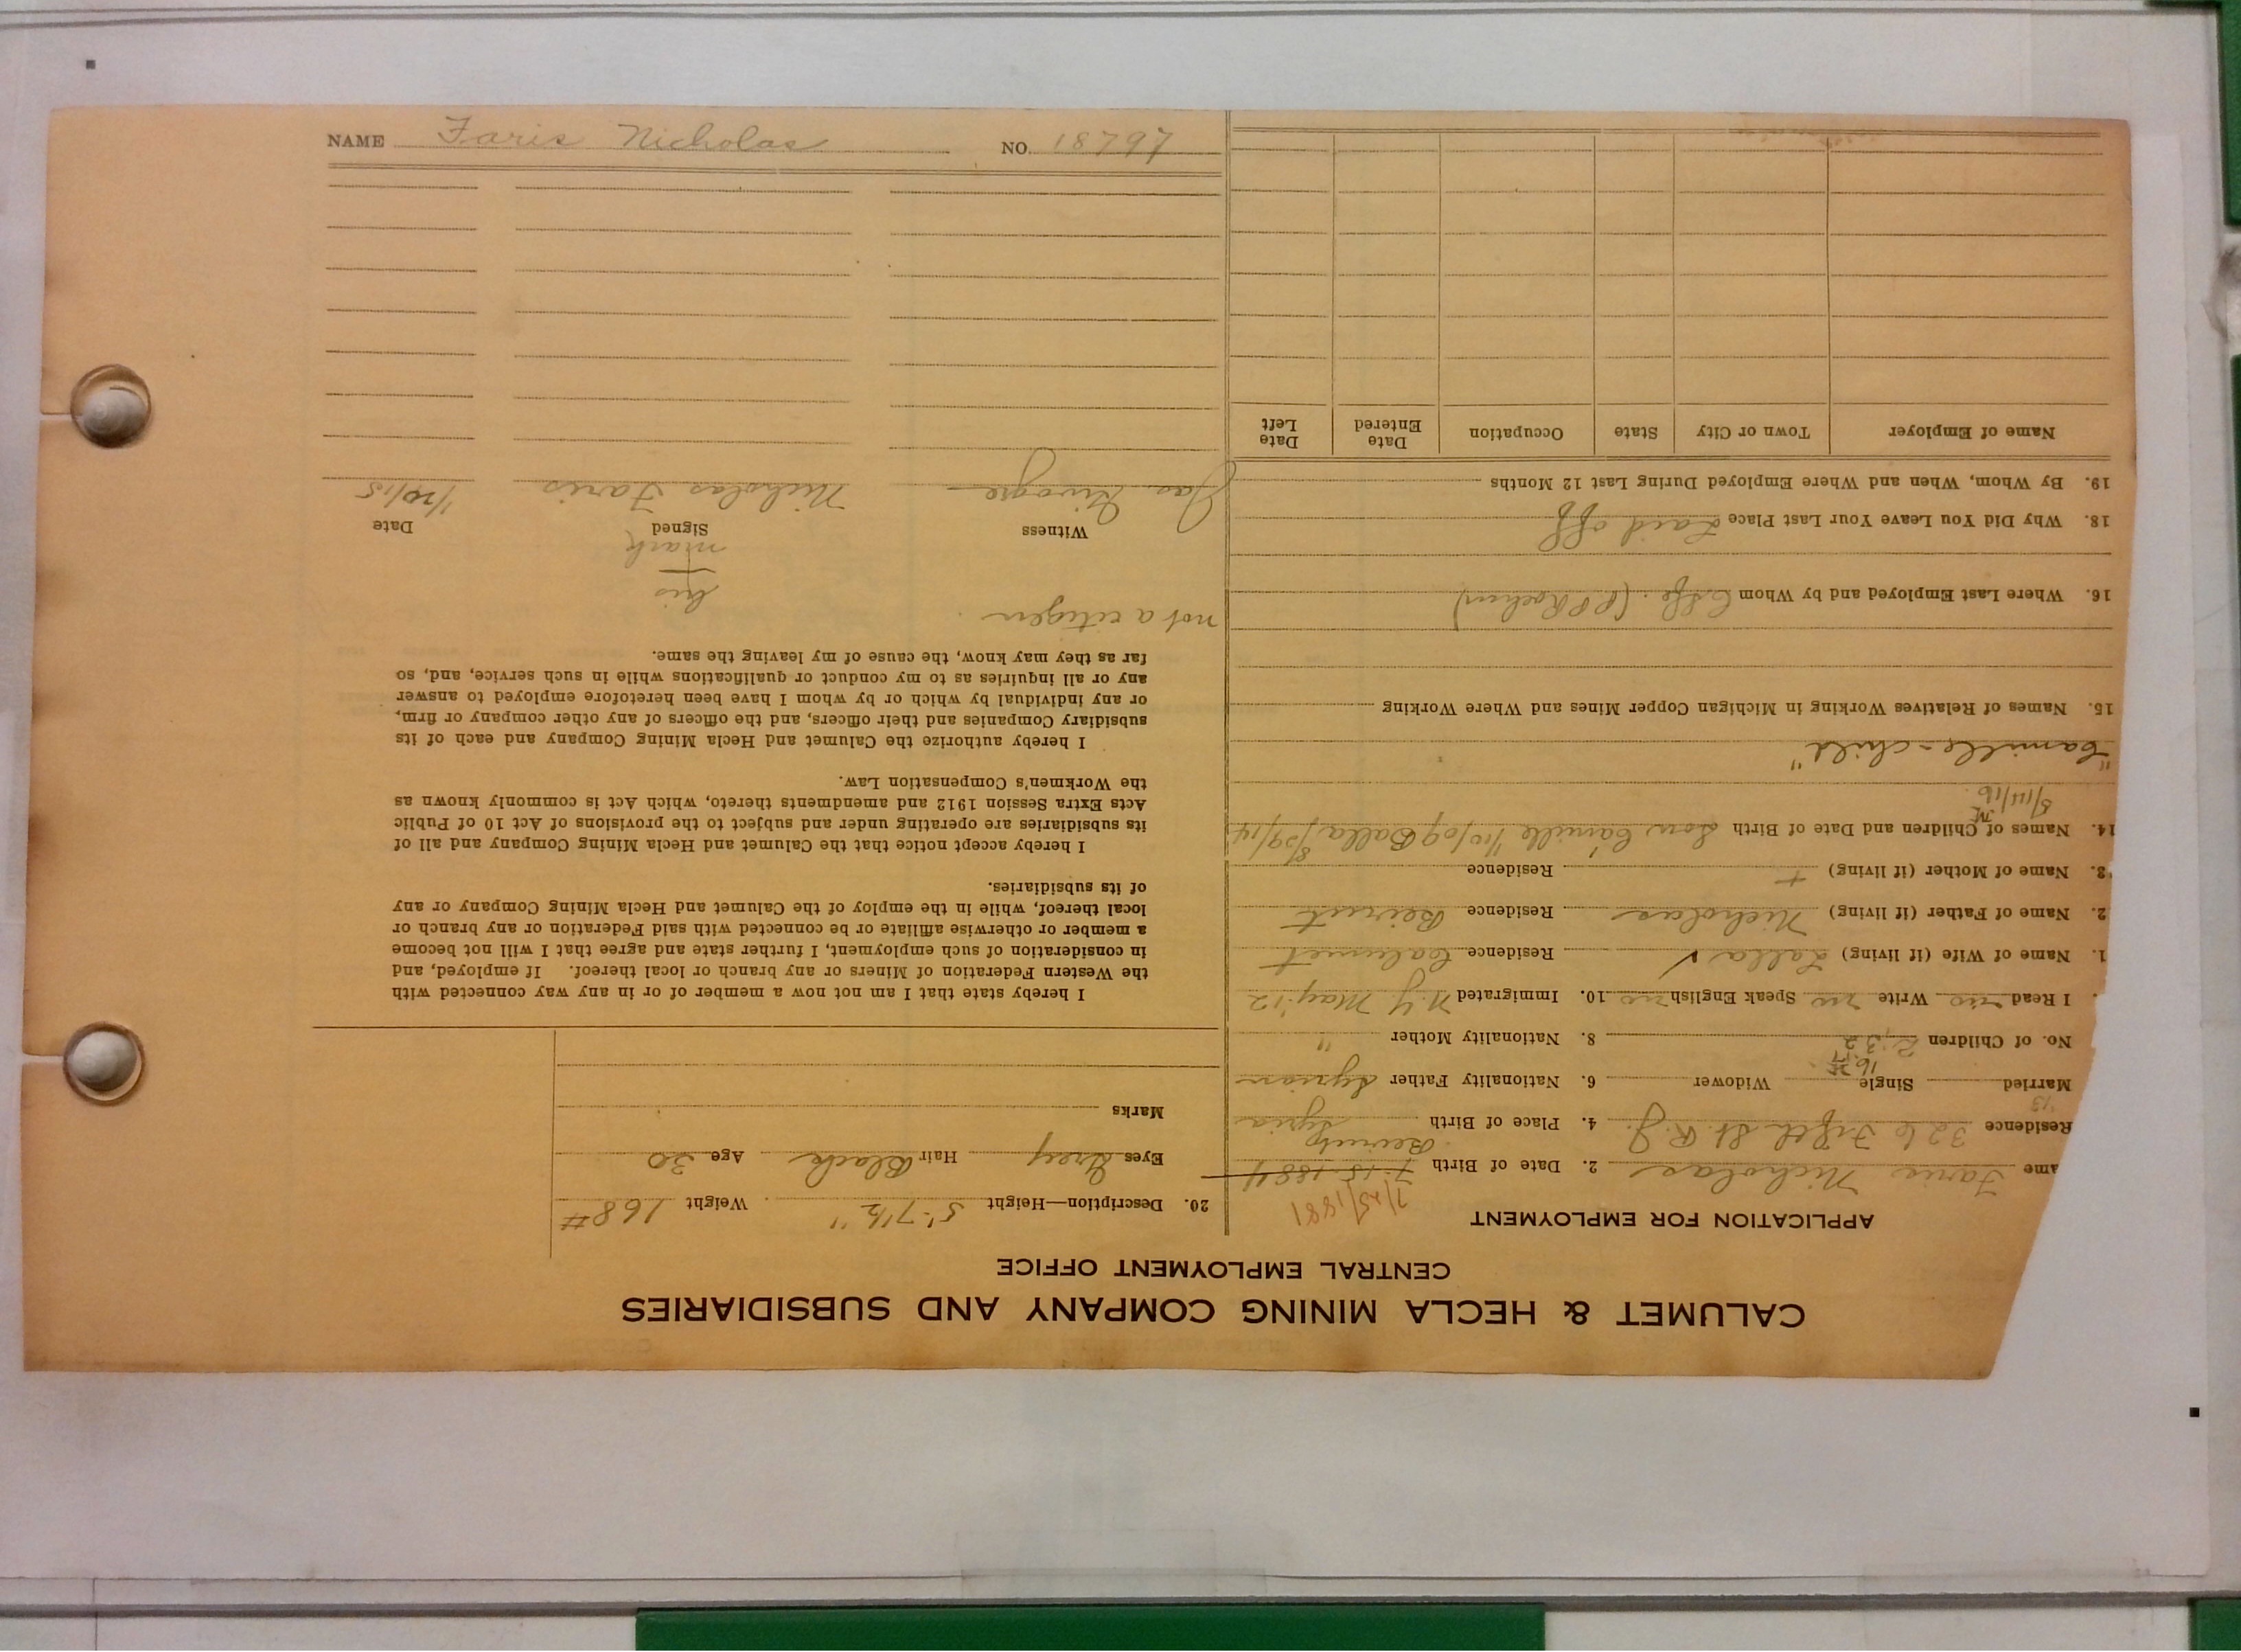 NAME Faris Nicholas NO. 18797
CALUMET & HECLA MINING COMPANY AND SUBSIDIARIES
CENTRAL EMPLOYMENT OFFICE
APPLICATION FOR EMPLOYMENT
7/25/1881
ame Faris Nicholas 2. Date of Birth 7-15-1884
Residence 326 Fifth St. R.J. 4. Place of Birth Beirut Syria
'15
Married Single Widower 6. Nationality Father Syrian
16 17
No. of Children 2 3 2 8. Nationality Mother "
I Read no Write no Speak English no 10. Immigrated N.Y May '12
1. Name of Wife (if living) Lalla Residence Calumet
2. Name of Father (if living) Nicholas Residence Beirut
3. Name of Mother (if living) + Residence
14. Names of Children and Date of Birth Son Camille 1/10/09 Balla 8/29/14
5/11/16
"Camille - child"
15. Names of Relatives Working in Michigan Copper Mines and Where Working
16. Where Last Employed and by Whom
18. Why Did You Leave Your Last Place Laid off
19. By Whom, When and Where Employed During Last 12 Months
Name of Employer Town or City State Occupation Date Entered Date Left
20. Description—Height 5'-7½" Weight 168#
Eyes Grey Hair Black Age 30
Marks
I hereby state that I am not now a member of or in any way connected with
the Western Federation of Miners or any branch or local thereof. If employed, and
in consideration of such employment, I further state and agree that I will not become
a member or otherwise affiliate or be connected with said Federation or any branch or
local thereof, while in the employ of the Calumet and Hecla Mining Company or any
of its subsidiaries.
I hereby accept notice that the Calumet and Hecla Mining Company and all of
its subsidiaries are operating under and subject to the provisions of Act 10 of Public
Acts Extra Session 1912 and amendments thereto, which Act is commonly known as
the Workmen's Compensation Law.
I hereby authorize the Calumet and Hecla Mining Company and each of its
subsidiary Companies and their officers, and the officers of any other company or firm,
or any individual by which or by whom I have been heretofore employed to answer
any or all inquiries as to my conduct or qualifications while in such service, and, so
far as they may know, the cause of my leaving the same.
not a citizen
his
+
mark
Witness Signed Date
Jas. Nicholas Faris 1/20/15